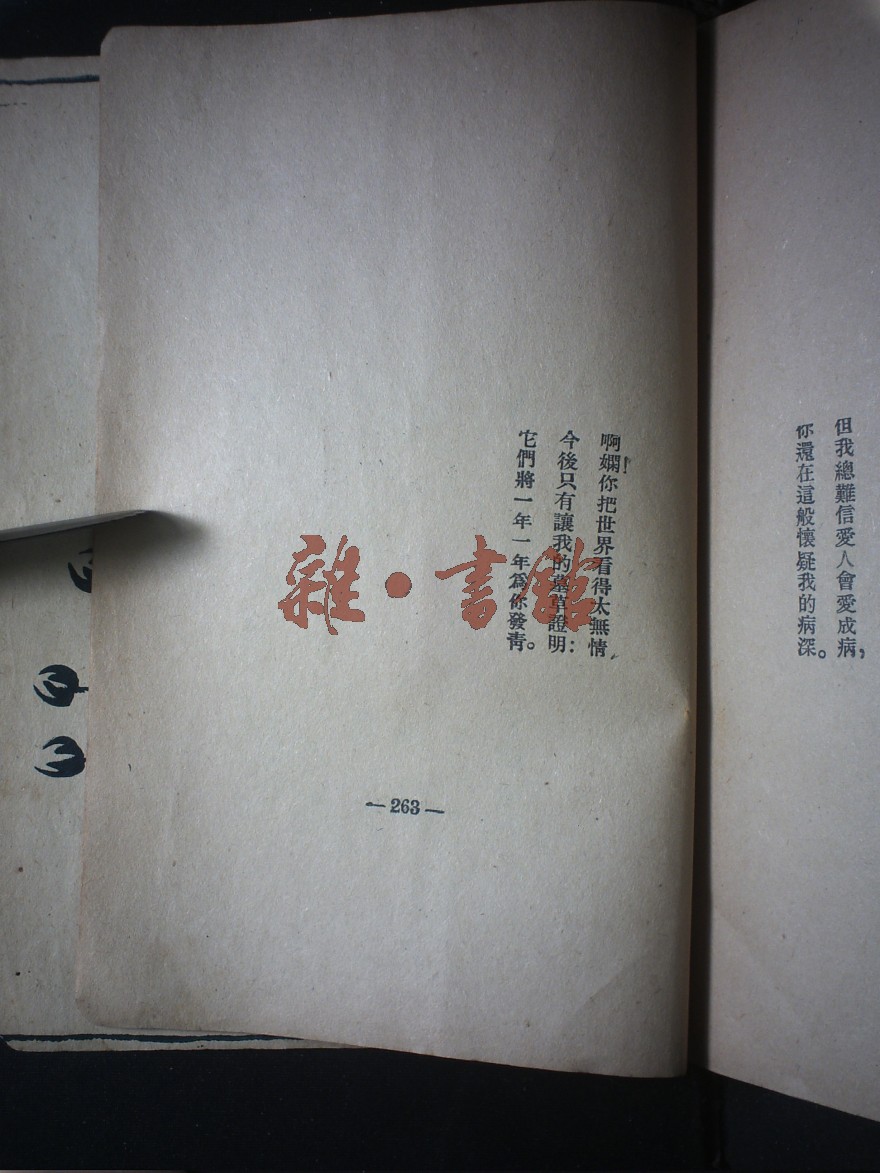 但我總難信愛人會愛成病，
你還在這般懷疑我的病深。
啊嫻！你把世界看得太無情，
今後只有讓我的墓草證明：
它們將一年一年爲你發靑。
— 263 —
雜·書館